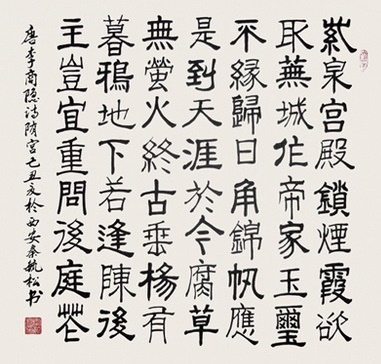 紫泉宫殿鎖煙霞欲
取蕪城作帝家玉璽
不緣歸日角錦帆應
是到天涯於今腐草
無螢火終古垂楊有
暮鴉地下若逢陳後
主豈宜重問後庭花
唐李商隐诗隋宫己丑夏於西安秦毓松书